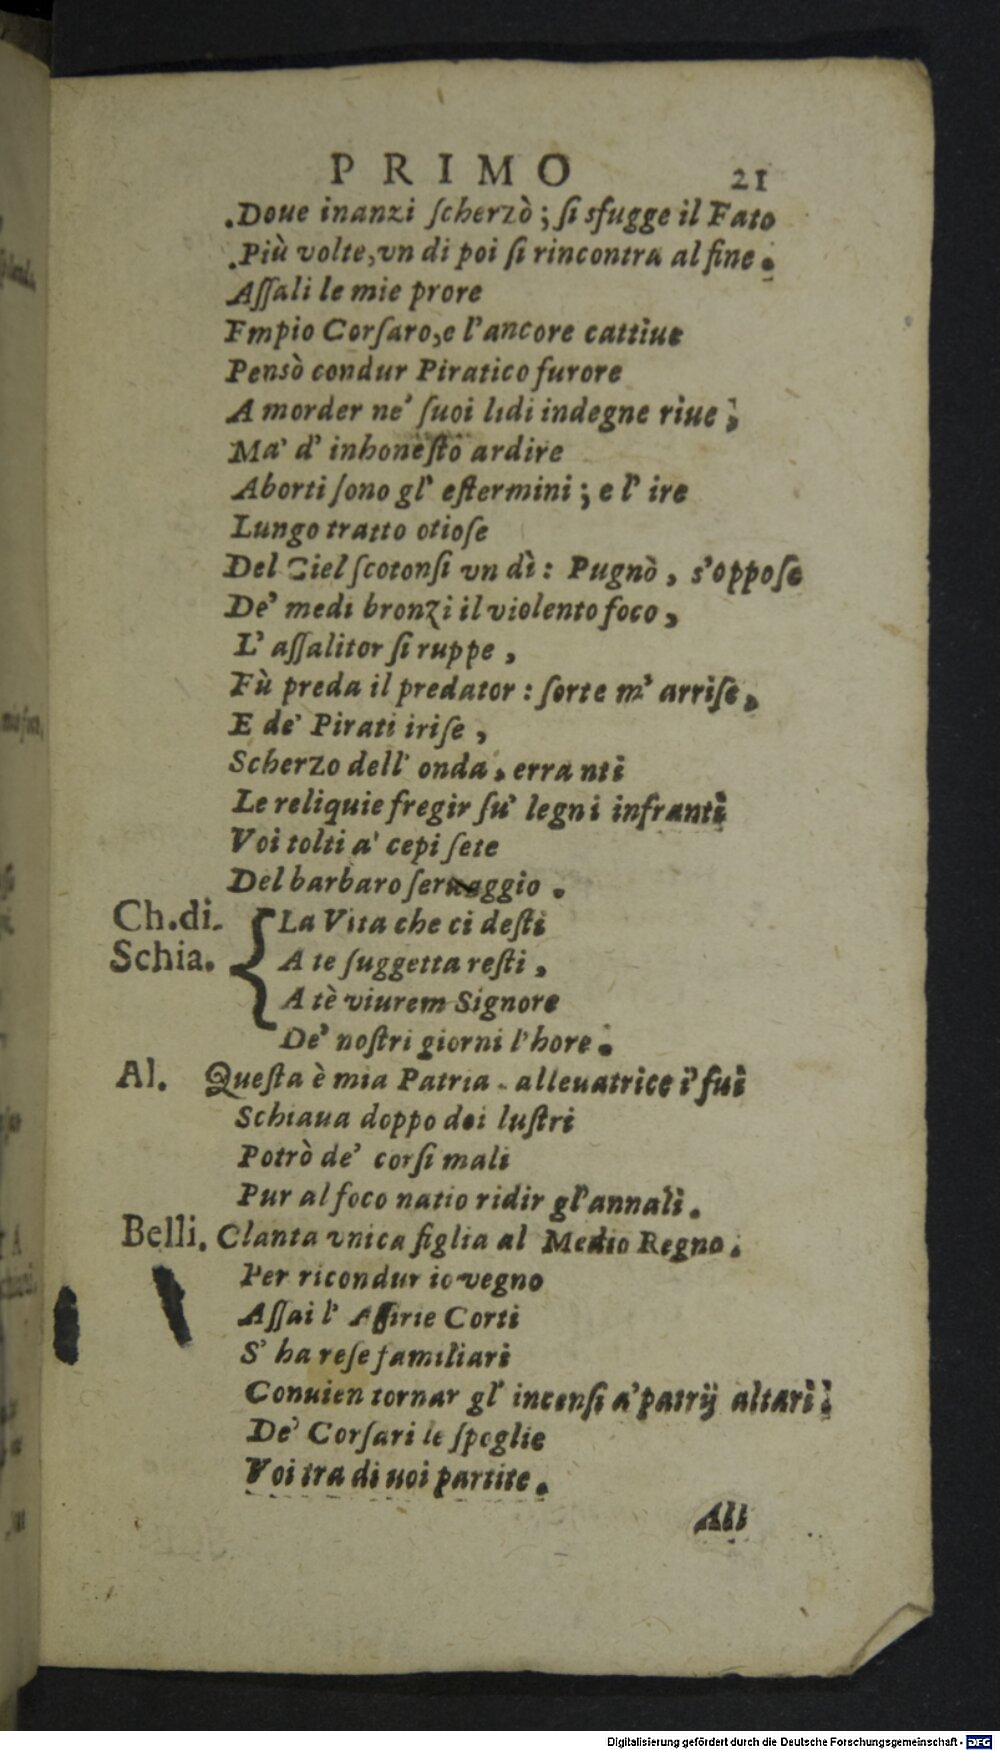 PRIMO 21
.Doue inanzi ſcherzò; ſi sfugge il Fato
.Più volte, vn di poi ſi rincontra al fine.
Aſſali le mie prore
Fmpio Corſaro, e l'ancore cattiue
Pensò condur Piratico furore
A morder ne' ſuoi lidi indegne riue;
Ma' d' inhoneſto ardire
Aborti ſono gl' eſtermini; e l' ire
Lungo tratto otioſe
Del Ciel ſcotonſi vn dì: Pugnò, s'oppoſe
De' medi bronzi il violento foco,
L' aſſalitor ſi ruppe,
Fù preda il predator: ſorte m' arriſe,
E de' Pirati iriſe,
Scherzo dell' onda, erranti
Le reliquie fregir ſu' legni infranti
Voi tolti a' cepi ſete
Del barbaro ſeruaggio.
Ch. di. La Vita che ci deſti
Schia. A te ſuggetta reſti,
A tè viurem Signore
De' noſtri giorni l'hore.
Al. Queſta è mia Patria - alleuatrice i' fui
Schiaua doppo doi luſtri
Potrò de' corſi mali
Pur al foco natio ridir gl'annali.
Belli. Clanta vnica figlia al Medio Regno.
Per ricondur io vegno
Aſſai l' Aſſirie Corti
S' ha reſe familiari
Conuien tornar gl' incenſi a' patrij altari!
De' Corſari le ſpoglie
Voi tra di uoi partite.
All
Digitalisierung gefördert durch die Deutsche Forschungsgemeinschaft - DFG